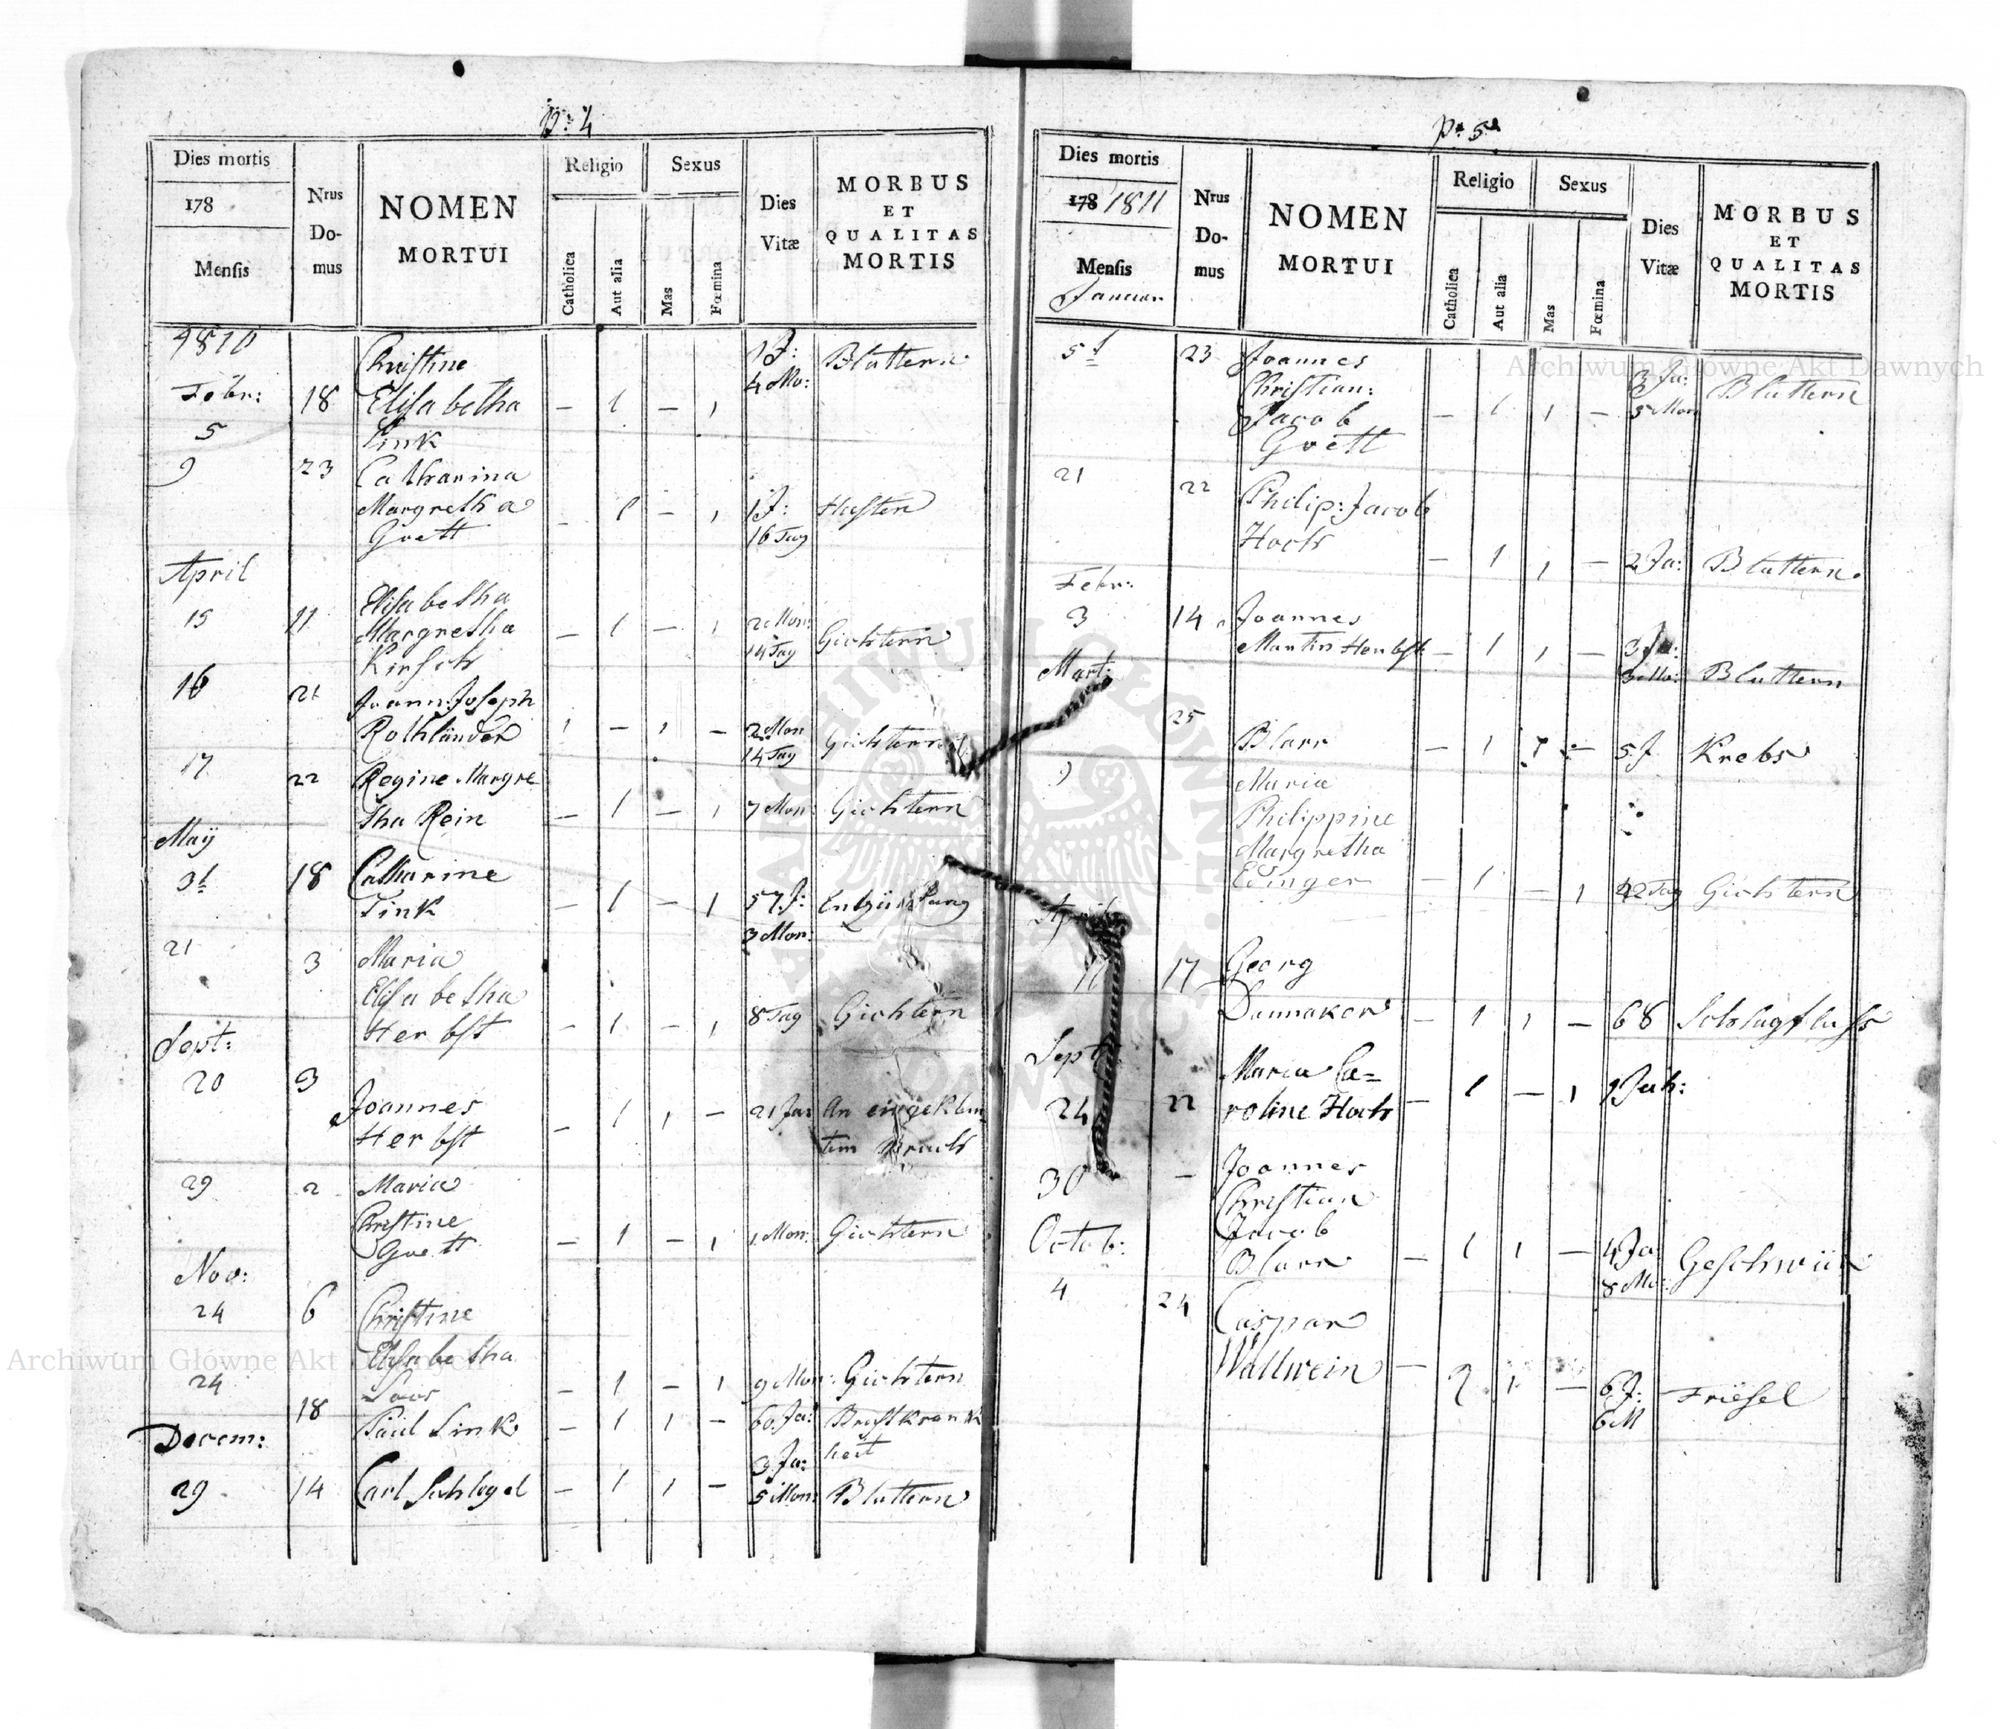 p: 4
Dies mortis
178
Mensis
Nrus
Do-
mus
NOMEN
MORTUI
Religio
Catholica
Aut alia
Sexus
Mas
Fœmina
Dies
Vitæ
MORBUS
ET
QUALITAS
MORTIS
1810
Christine
1 J:
Blattern
4 Mo:
Febr: 18 Elisabetha – 1 – 1
5 Link
9 23 Catharina
Margretha – 1 – 1 1 J: Husten
Goett 16 Tag
April
Elisabetha
15 11 Margretha – 1 – 1 2 Mon: Gichtern
14 Tag
Kirsch
16 21 Joann: Joseph
Rothländer 1 – 1 – 2 Mon Gichtern
14 Tag
17 22 Regine Margre
tha Rein – 1 – 1 7 Mon Gichtern
Maÿ
3t 18 Catharine
Link – 1 – 1 57 J: Entzündung
3 Mon:
21 3 Maria
Elisabetha
Herbst – 1 – 1 8 Tag Gichtern
Sept:
20 3 Joannes – 1 1 – 21 Ja: An eingeklem
Herbst tem Bruch
29 2 Maria
Christine
Goett – 1 – 1 1 Mon: Gichtern
Nov:
24 6 Christine
Elisabetha
24 Soos – 1 – 1 9 Mon: Gichtern
18 Paul Link – 1 1 – 60 Ja: Brustkrank
heit
Decem: 3 Ja:
29 14 Carl Schlegel – 1 1 – 5 Mon: Blattern
p: 5
Dies mortis
178 1811
Mensis
Januar
Nrus
Do-
mus
NOMEN
MORTUI
Religio
Catholica
Aut alia
Sexus
Mas
Fœmina
Dies
Vitæ
MORBUS
ET
QUALITAS
MORTIS
5t 23 Joannes
Christian: 3 Ja: Blattern
Jacob – 1 1 – 5 Mon
Goett
21 22 Philip: Jacob
Hoch – 1 1 – 2 Ja: Blattern
Febr:
3 14 Joannes
Martin Herbst – 1 1 – 3 Ja:
Mart: 3 Mo: Blattern
25 Blarr – 1 1 – 5 J Krebs
9 Maria
Philippine
Margretha
Edinger – 1 – 1 22 Tag Gichtern
April
11 17 Georg
Dannaker – 1 1 – 68 Schlagfluss
Sept:
24 22 Maria Ca=
roline Hoch – 1 – 1 1 Jah:
30 – Joannes
Christian
Jacob
Octob: Blarr – 1 1 – 4 Ja
8 Mo:
4 24 Caspar
Wallwein – 1 1 – 6 J: Friesel
6 M
Archiwum Główne Akt Dawnych
Archiwum Główne Akt Dawnych